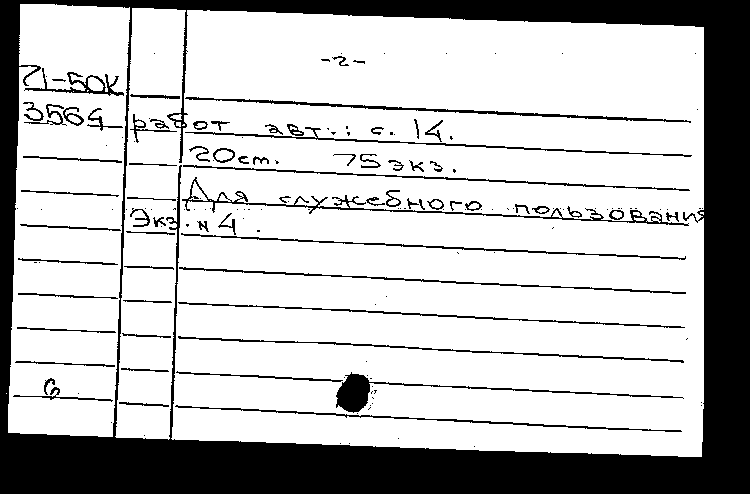 -2-
71-50К
3564 работ авт.: с. 14.
20см. 75экз.
Для служебного пользования
Экз. № 4.
6